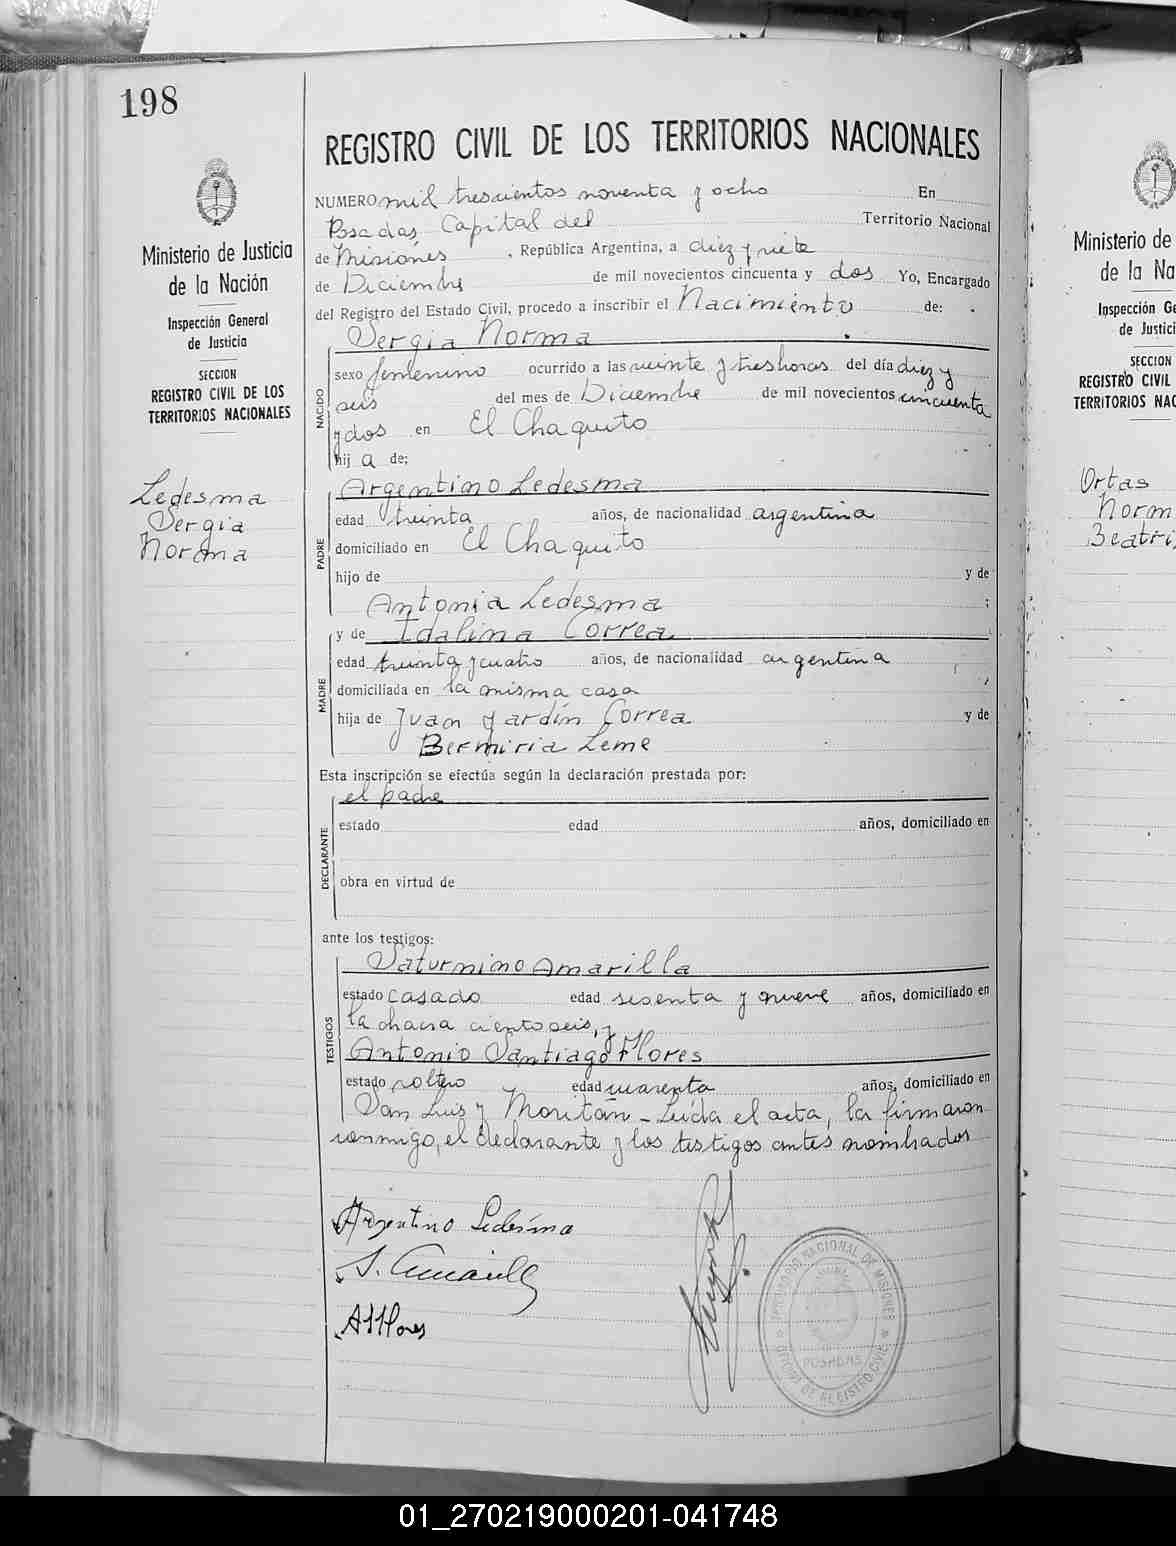 198
REGISTRO CIVIL DE LOS TERRITORIOS NACIONALES
NUMERO mil trescientos noventa y ocho En
Posadas Capital del Territorio Nacional
de Misiones, República Argentina, a diez y siete
de Diciembre de mil novecientos cincuenta y dos Yo, Encargado
del Registro del Estado Civil, procedo a inscribir el Nacimiento de:
Ministerio de Justicia
de la Nación
Inspección General
de Justicia
SECCION
REGISTRO CIVIL DE LOS
TERRITORIOS NACIONALES
Ledesma
Sergia
Norma
NACIDO
Sergia Norma
sexo femenino ocurrido a las veinte y tres horas del día diez y
seis del mes de Diciembre de mil novecientos cincuenta
y dos en El Chaquito
hij a de:
PADRE
Argentino Ledesma
edad treinta años, de nacionalidad argentina
domiciliado en El Chaquito
hijo de y de
Antonia Ledesma ;
MADRE
y de Idalina Correa
edad treinta y cuatro años, de nacionalidad argentina
domiciliada en la misma casa
hija de Juan Jardín Correa y de
Bermiria Leme
Esta inscripción se efectúa según la declaración prestada por:
DECLARANTE
el padre
estado edad años, domiciliado en
obra en virtud de
ante los testigos:
TESTIGOS
Saturnino Amarilla
estado casado edad sesenta y nueve años, domiciliado en
la chacra ciento seis, y
Antonio Santiago Flores
estado soltero edad cuarenta años, domiciliado en
San Luis y Moritán - Leída el acta, la firmaron
conmigo, el declarante y los testigos antes nombrados
Argentino Ledesma
S. Amarilla
A S Flores
TERRITORIO NACIONAL DE MISIONES
POSADAS
OFICINA DE REGISTRO CIVIL
Ministerio de
de la Na
Inspección Ge
de Justici
SECCION
REGISTRO CIVIL
TERRITORIOS NAC
Ortas
Norm
Beatri
01_270219000201-041748